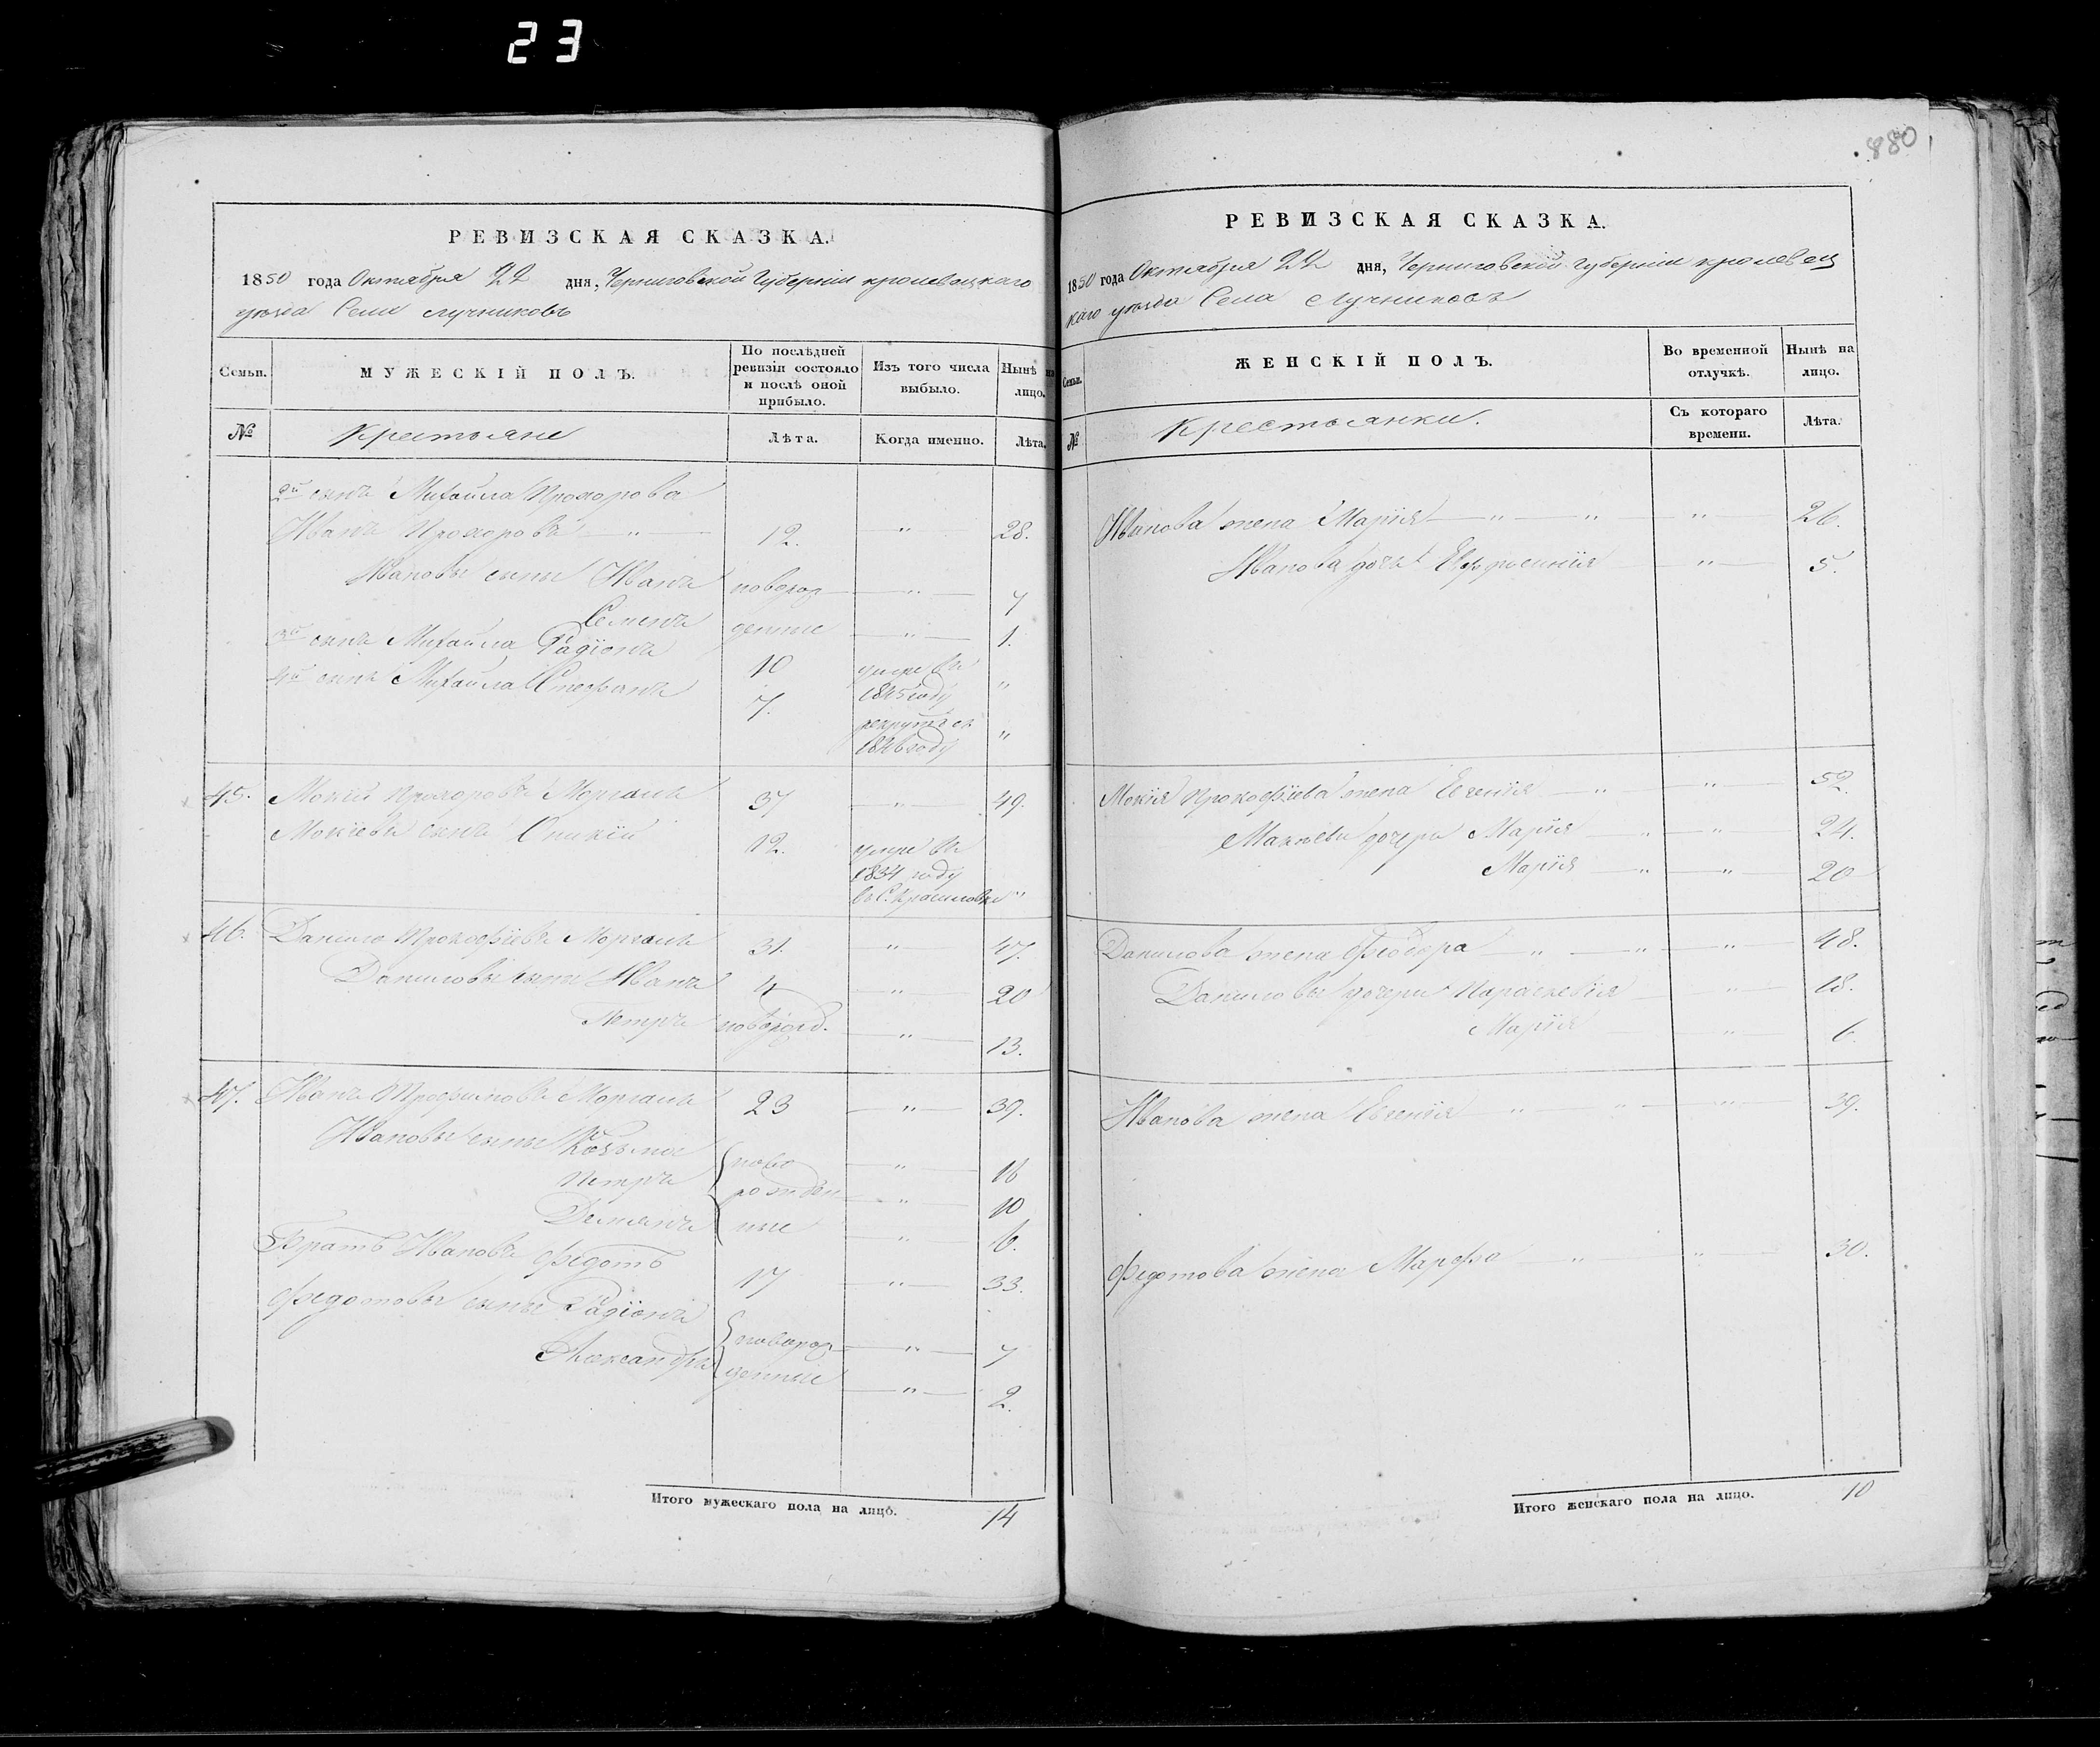 23
880
РЕВИЗСКАЯ СКАЗКА.
1850 года Октября 22 дня, Черниговской Губерніи кролевецкаго
уезда Села Лучниковъ
Семьи. МУЖЕСКІЙ ПОЛЪ. По послѣдней ревизіи состояло и послѣ оной прибыло. Изъ того числа выбыло. Нынѣ на лицо.
№ Крестьяне Лѣта. Когда именно. Лѣта.
2й сынъ Михайла Прохорова
Иванъ Прохоровъ — " — 12. " 28.
Ивановы сыны Иванъ новорож — " — 7
Семенъ денные — " — 1.
3й сынъ Михайла Радіонъ 10 умре въ 1845 году "
4й сынъ Михайла Стефанъ 7. рекрутъ съ 1846 году "
45. Мокій Прохоровъ Моргаль 37 — " — 49.
Мокіевъ сынъ Оникій 12. умре въ
1834 году
въ С. Красиловке "
46. Данило Прокофіевъ Моргаль 31. — " — 47.
Даниловы сыны Иванъ 4 — " — 20
Петръ новорожд. — " — 13.
47. Иванъ Трофимовъ Моргаль 23 — " — 39.
Ивановы сыны Козьма ново — " — 16
Петръ рожден — " — 10
Демянъ ные — " — 6.
Братъ Ивановъ Федотъ 17 — " — 33.
Федотовы сыны Радіонъ новорож — " — 7
Александръ денные — " — 2.
Итого мужескаго пола на лицо. 14
РЕВИЗСКАЯ СКАЗКА.
1850 года Октября 22 дня, Черниговской Губерніи кролевец
каго уезда Села Лучниковъ
Семьи. ЖЕНСКІЙ ПОЛЪ. Во временной отлучкѣ. Нынѣ на лицо.
№ Крестьянки. Съ котораго времени. Лѣта.
Иванова жена Марія — " — " — " — 26.
Иванова дочь Евфросинія — " — 5.
Мокія Прокофіева жена Евгенія — " — " — 52.
Мокіевы дочери Марія — " — " — 24.
Марія — " — " — 20
Данилова жена Феодора — " — " — " — 48.
Даниловы дочери Параскевія — " — 18.
Марія — " — 6.
Иванова жена Евгенія — " — " — " — 39.
Федотова жена Марфа — " — " — 30.
Итого женскаго пола на лицо. 10